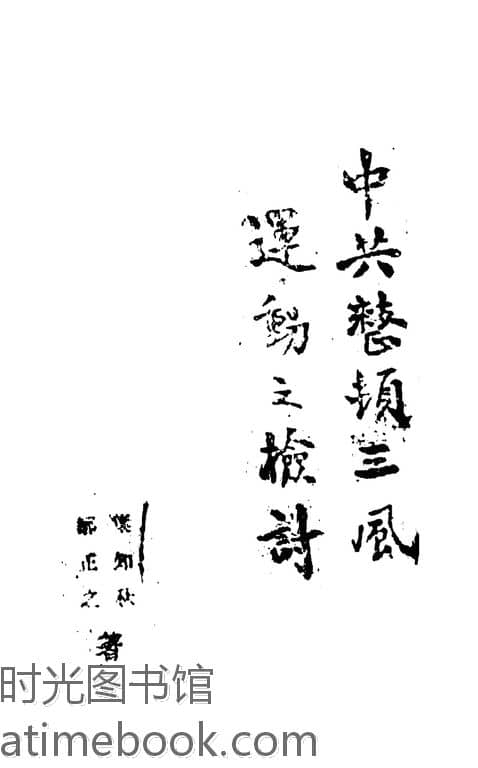 中共整頓三風
運動之檢討
葉知秋
鄭正之
著
时光图书馆
atimebook.com